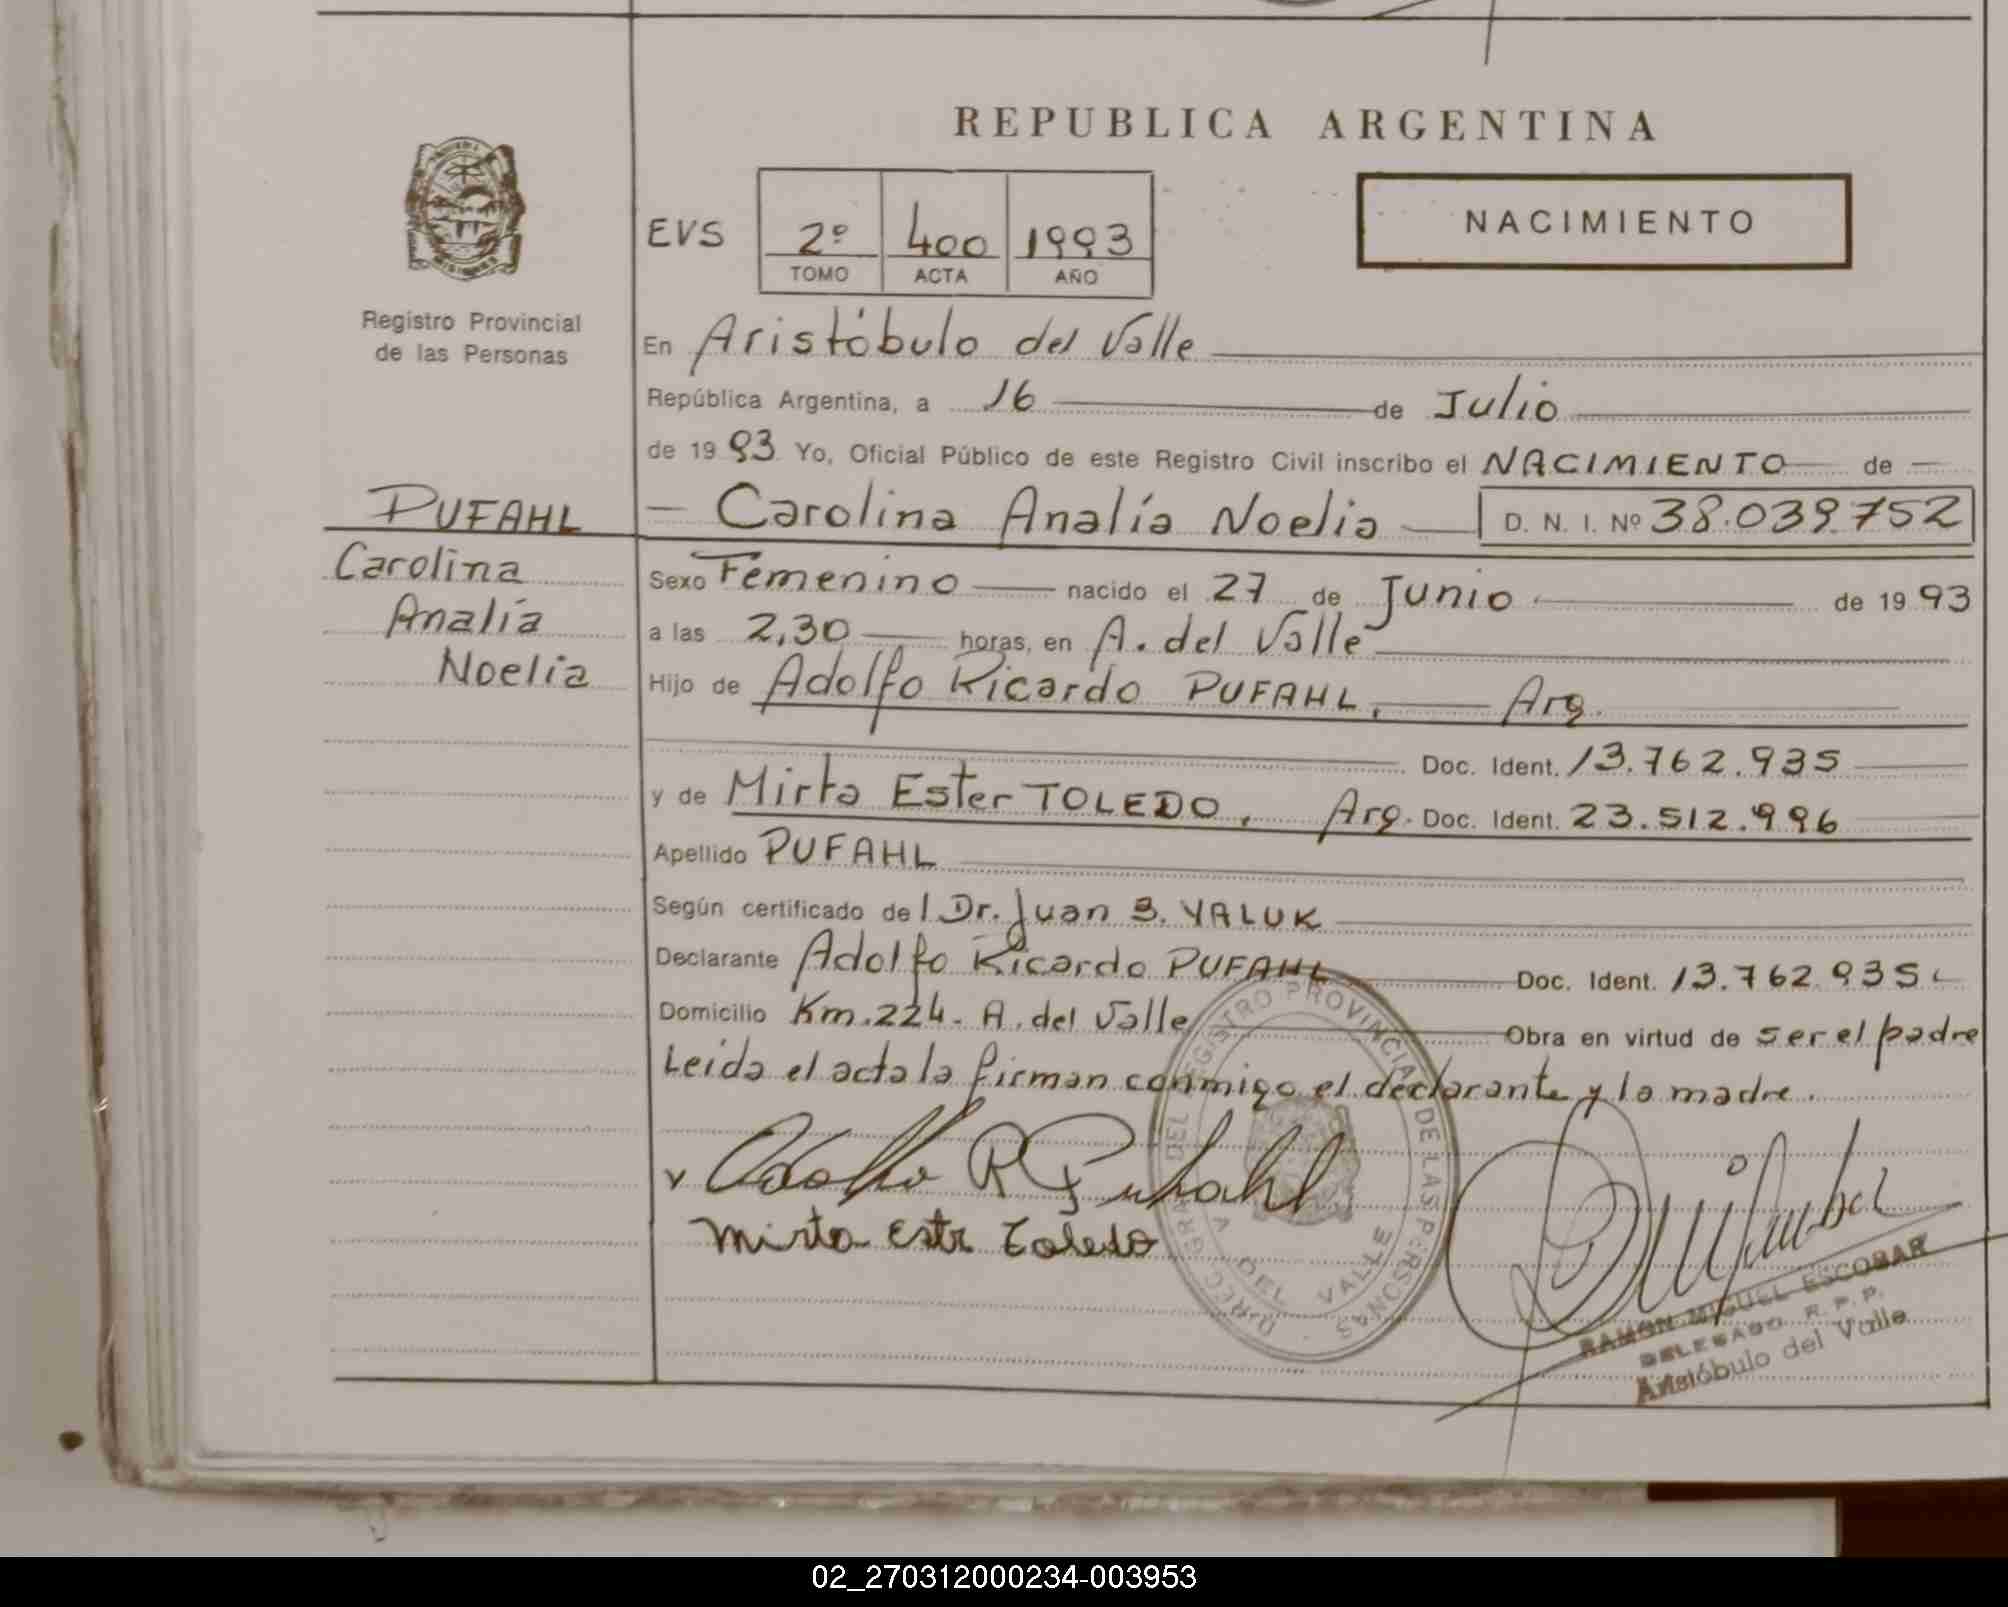 REPUBLICA ARGENTINA
NACIMIENTO
EVS 2º 400 1993
TOMO ACTA AÑO
Registro Provincial
de las Personas
En Aristóbulo del Valle
República Argentina, a 16 de Julio
de 1993 Yo, Oficial Público de este Registro Civil inscribo el NACIMIENTO de
PUFAHL
Carolina
Analía
Noelia
Carolina Analía Noelia D. N. I. Nº 38.039.752
Sexo Femenino nacido el 27 de Junio de 1993
a las 2,30 horas, en A. del Valle
Hijo de Adolfo Ricardo PUFAHL, Arg.
Doc. Ident. 13.762.935
y de Mirta Ester TOLEDO, Arg. Doc. Ident. 23.512.996
Apellido PUFAHL
Según certificado del Dr. Juan B. YALUK
Declarante Adolfo Ricardo PUFAHL Doc. Ident. 13.762.935
Domicilio Km.224. A. del Valle Obra en virtud de ser el padre
Leida el acta la firman conmigo el declarante y la madre.
Adolfo R Pufahl
Mirta Estr Toledo
REGISTRO PROVINCIAL DE LAS PERSONAS
A DEL VALLE
RAMON MIGUEL ESCOBAR
DELEGADO R. P. P.
Aristóbulo del Valle
02_270312000234-003953